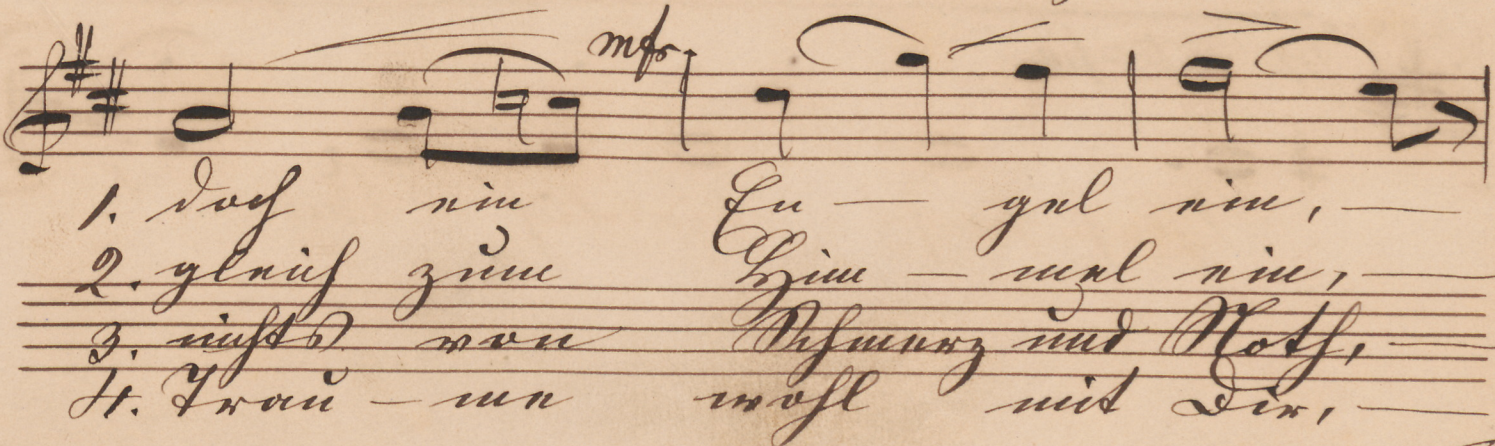 mf
1. doch ein En — gel ein, —
2. gleich zum Him — mel ein, —
3. nichts von Schmerz und Noth, —
4. Trau — me wohl mit Dir, —